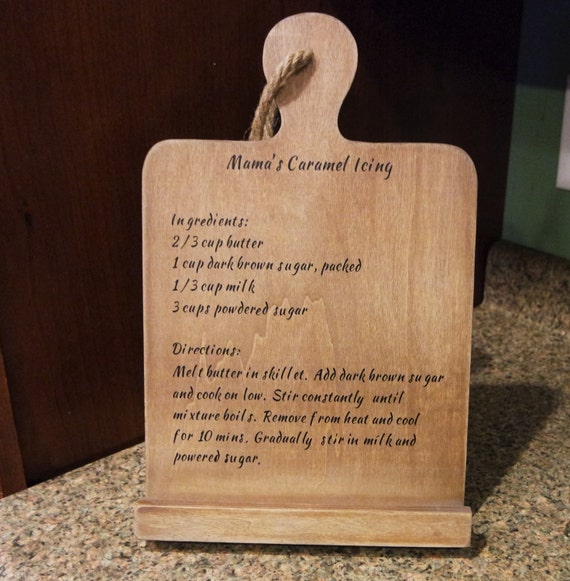 Mama's Caramel Icing
Ingredients:
2/3 cup butter
1 cup dark brown sugar, packed
1/3 cup milk
3 cups powdered sugar
Directions:
Melt butter in skillet. Add dark brown sugar
and cook on low. Stir constantly until
mixture boils. Remove from heat and cool
for 10 mins. Gradually stir in milk and
powered sugar.